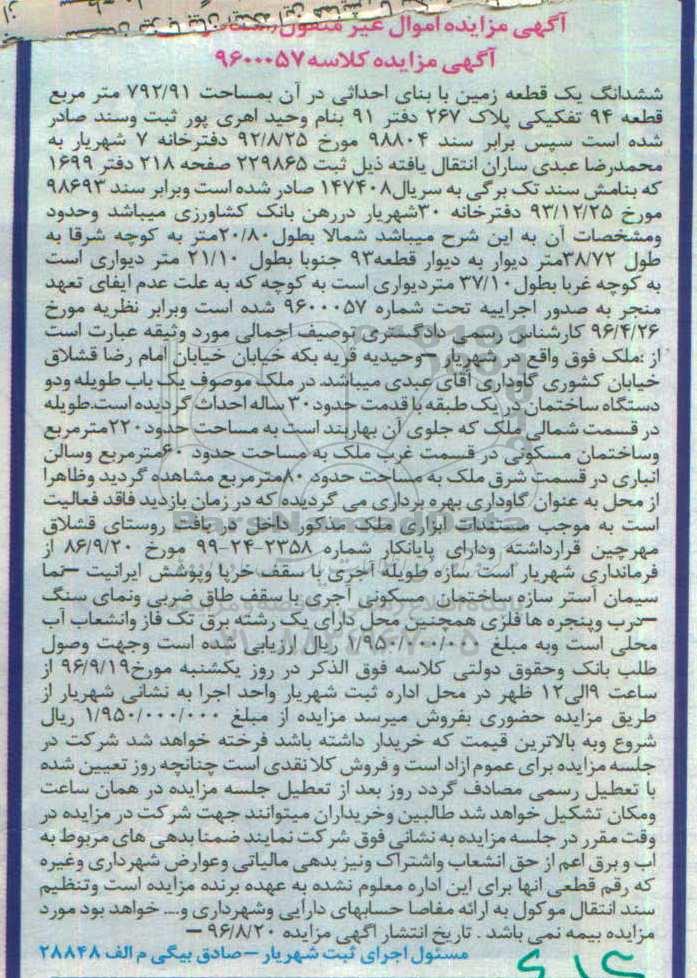 آگهی مزایده اموال غیر منقول
آگهی مزایده کلاسه ۹۶۰۰۰۵۷
ششدانگ یک قطعه زمین با بنای احداثی در آن بمساحت ۷۹۲/۹۱ متر مربع
قطعه ۹۴ تفکیکی پلاک ۲۶۷ دفتر ۹۱ بنام وحید اهری پور ثبت وسند صادر
شده است سپس برابر سند ۹۸۸۰۴ مورخ ۹۲/۸/۲۵ دفترخانه ۷ شهریار به
محمدرضا عبدی ساران انتقال یافته ذیل ثبت ۲۲۹۸۶۵ صفحه ۲۱۸ دفتر ۱۶۹۹
که بنامش سند تک برگی به سریال۱۴۷۴۰۸ صادر شده است وبرابر سند ۹۸۶۹۳
مورخ ۹۳/۱۲/۲۵ دفترخانه ۳۰شهریار دررهن بانک کشاورزی میباشد وحدود
ومشخصات آن به این شرح میباشد شمالا بطول۲۰/۸۰متر به کوچه شرقا به
طول ۳۸/۷۲متر دیوار به دیوار قطعه۹۳ جنوبا بطول ۲۱/۱۰ متر دیواری است
به کوچه غربا بطول۳۷/۱۰ متردیواری است به کوچه که به علت عدم ایفای تعهد
منجر به صدور اجراییه تحت شماره ۹۶۰۰۰۵۷ شده است وبرابر نظریه مورخ
۹۶/۴/۲۶ کارشناس رسمی دادگستری توصیف اجمالی مورد وثیقه عبارت است
از :ملک فوق واقع در شهریار –وحیدیه قریه بکه خیابان خیابان امام رضا قشلاق
خیابان کشوری گاوداری آقای عبدی میباشد. در ملک موصوف یک باب طویله ودو
دستگاه ساختمان در یک طبقه با قدمت حدود۳۰ ساله احداث گردیده است.طویله
در قسمت شمالی ملک که جلوی آن بهاربند است به مساحت حدود۲۲۰مترمربع
وساختمان مسکونی در قسمت غرب ملک به مساحت حدود ۶۰مترمربع وسالن
انباری در قسمت شرق ملک به مساحت حدود ۸۰مترمربع مشاهده گردید وظاهرا
از محل به عنوان گاوداری بهره برداری می گردیده که در زمان بازدید فاقد فعالیت
است به موجب مستندات ابرازی ملک مذکور داخل در بافت روستای قشلاق
مهرچین قرارداشته ودارای پایانکار شماره ۲۳۵۸-۲۴-۹۹ مورخ ۸۶/۹/۲۰ از
فرمانداری شهریار است سازه طویله آجری با سقف خرپا وپوشش ایرانیت –نما
سیمان آستر سازه ساختمان مسکونی آجری با سقف طاق ضربی ونمای سنگ
–درب وپنجره ها فلزی همچنین محل دارای یک رشته برق تک فاز وانشعاب آب
محلی است وبه مبلغ ۱/۹۵۰/۰۰۰/۰۰۰ ریال ارزیابی شده است وجهت وصول
طلب بانک وحقوق دولتی کلاسه فوق الذکر در روز یکشنبه مورخ۹۶/۹/۱۹ از
ساعت ۹الی۱۲ ظهر در محل اداره ثبت شهریار واحد اجرا به نشانی شهریار از
طریق مزایده حضوری بفروش میرسد مزایده از مبلغ ۱/۹۵۰/۰۰۰/۰۰۰ ریال
شروع وبه بالاترین قیمت که خریدار داشته باشد فرخته خواهد شد شرکت در
جلسه مزایده برای عموم ازاد است و فروش کلا نقدی است چنانچه روز تعیین شده
با تعطیل رسمی مصادف گردد روز بعد از تعطیل جلسه مزایده در همان ساعت
ومکان تشکیل خواهد شد طالبین وخریداران میتوانند جهت شرکت در مزایده در
وقت مقرر در جلسه مزایده به نشانی فوق شرکت نمایند ضمنا بدهی های مربوط به
اب وبرق اعم از حق انشعاب واشتراک ونیز بدهی مالیاتی وعوارض شهرداری وغیره
که رقم قطعی انها برای این اداره معلوم نشده به عهده برنده مزایده است وتنظیم
سند انتقال موکول به ارائه مفاصا حسابهای دارایی وشهرداری و... خواهد بود مورد
مزایده بیمه نمی باشد . تاریخ انتشار اگهی مزایده ۹۶/۸/۲۰ –
مسئول اجرای ثبت شهریار –صادق بیگی م الف ۲۸۸۴۸